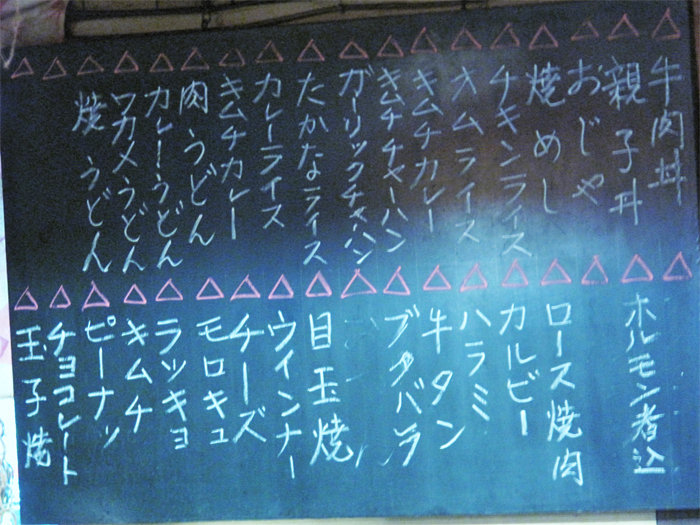 牛肉丼
親子丼
おじや
焼めし
チキンライス
オムライス
キムチカレー
キムチチャーハン
ガーリックチャハン
たかなライス
カレーライス
キムチカレー
肉うどん
カレーうどん
ワカメうどん
焼うどん
ホルモン者込
ロース焼肉
カルビー
ハラミ
牛タン
ブタバラ
目玉焼
ウインナー
チーズ
モロキュ
ラッキョ
キムチ
ピーナッ
チョコレート
玉子焼